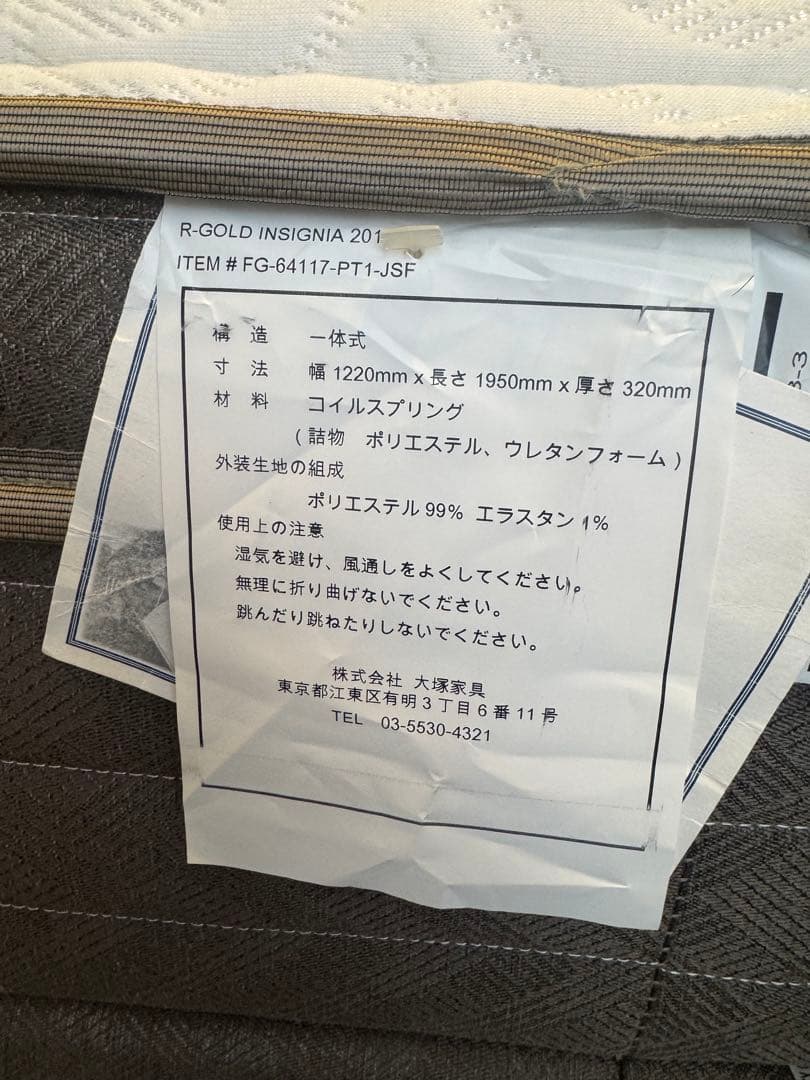 R-GOLD INSIGNIA 201
ITEM # FG-64117-PT1-JSF
構 造 一体式
寸 法 幅 1220mm x 長さ 1950mm x 厚さ 320mm
材 料 コイルスプリング
( 詰物 ポリエステル、ウレタンフォーム )
外装生地の組成
ポリエステル 99% エラスタン 1%
使用上の注意
湿気を避け、風通しをよくしてください。
無理に折り曲げないでください。
跳んだり跳ねたりしないでください。
株式会社 大塚家具
東京都江東区有明3丁目6番11号
TEL 03-5530-4321